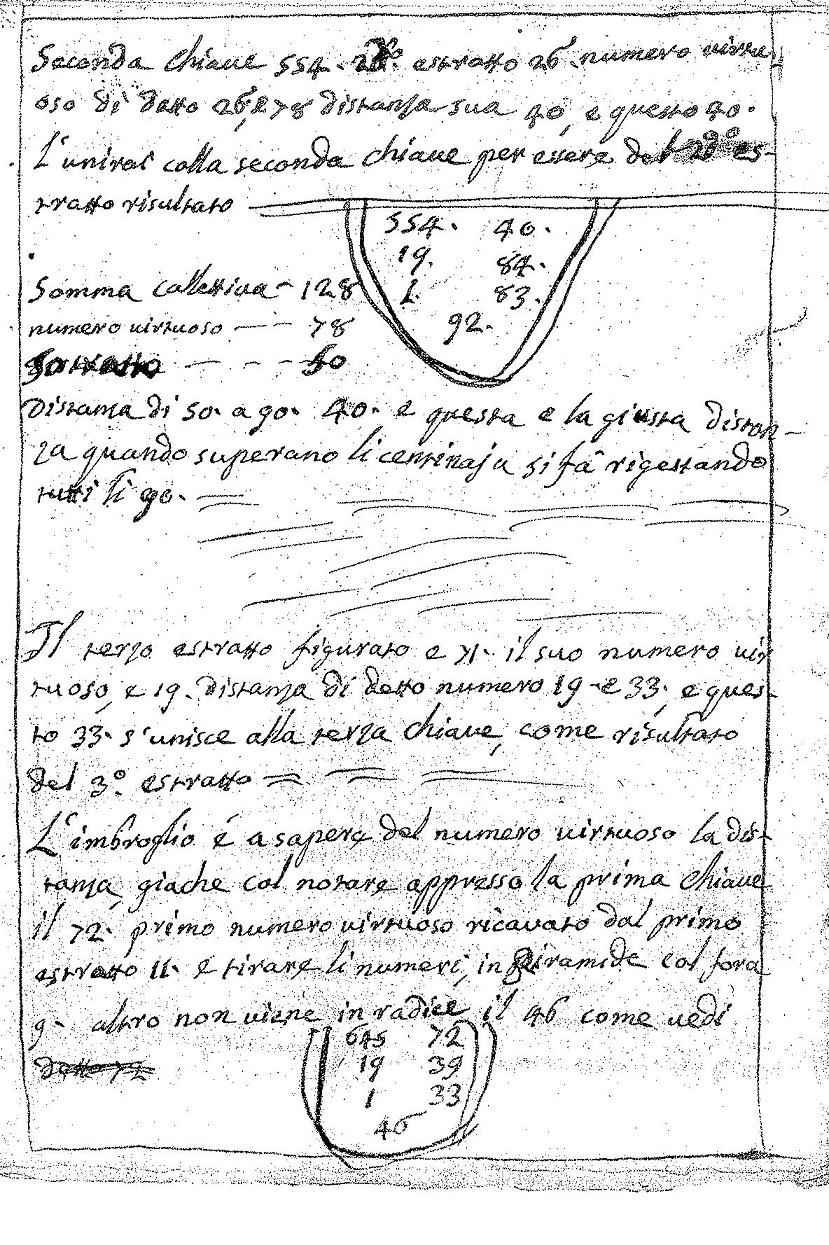 Seconda chiave 554. 2do. estratto 26 numero virtu-
oso di detto 26, è 78 distanza sua 40, e questo 40.
L'unirai colla seconda chiave per essere del 2do es-
tratto risultato
554. 40.
19. 84.
1. 83.
92.
Somma collettiva - 128
numero virtuoso — — 78
Sotratto — — - 50
Distanza di 50. a 90. 40. e questa e la giusta distan-
za quando superano li centinaja si fà rigettando
tutti li 90.
Il terzo estratto figurato e 71. il suo numero vir-
tuoso, e 19. distanza di detto numero 19 e 33, e ques-
to 33. s'unisce alla terza chiave, come risultato
del 3º estratto
L'imbroglio é a sapere del numero virtuoso la dis-
tanza, giache col notare appresso la prima chiave
il 72. primo numero virtuoso ricavato dal primo
estratto 11. e tirare li numeri, in Piramide col fora
9. altro non viene in radice il 46 come vedi
detto 72
645 72
19 39
1 33
46